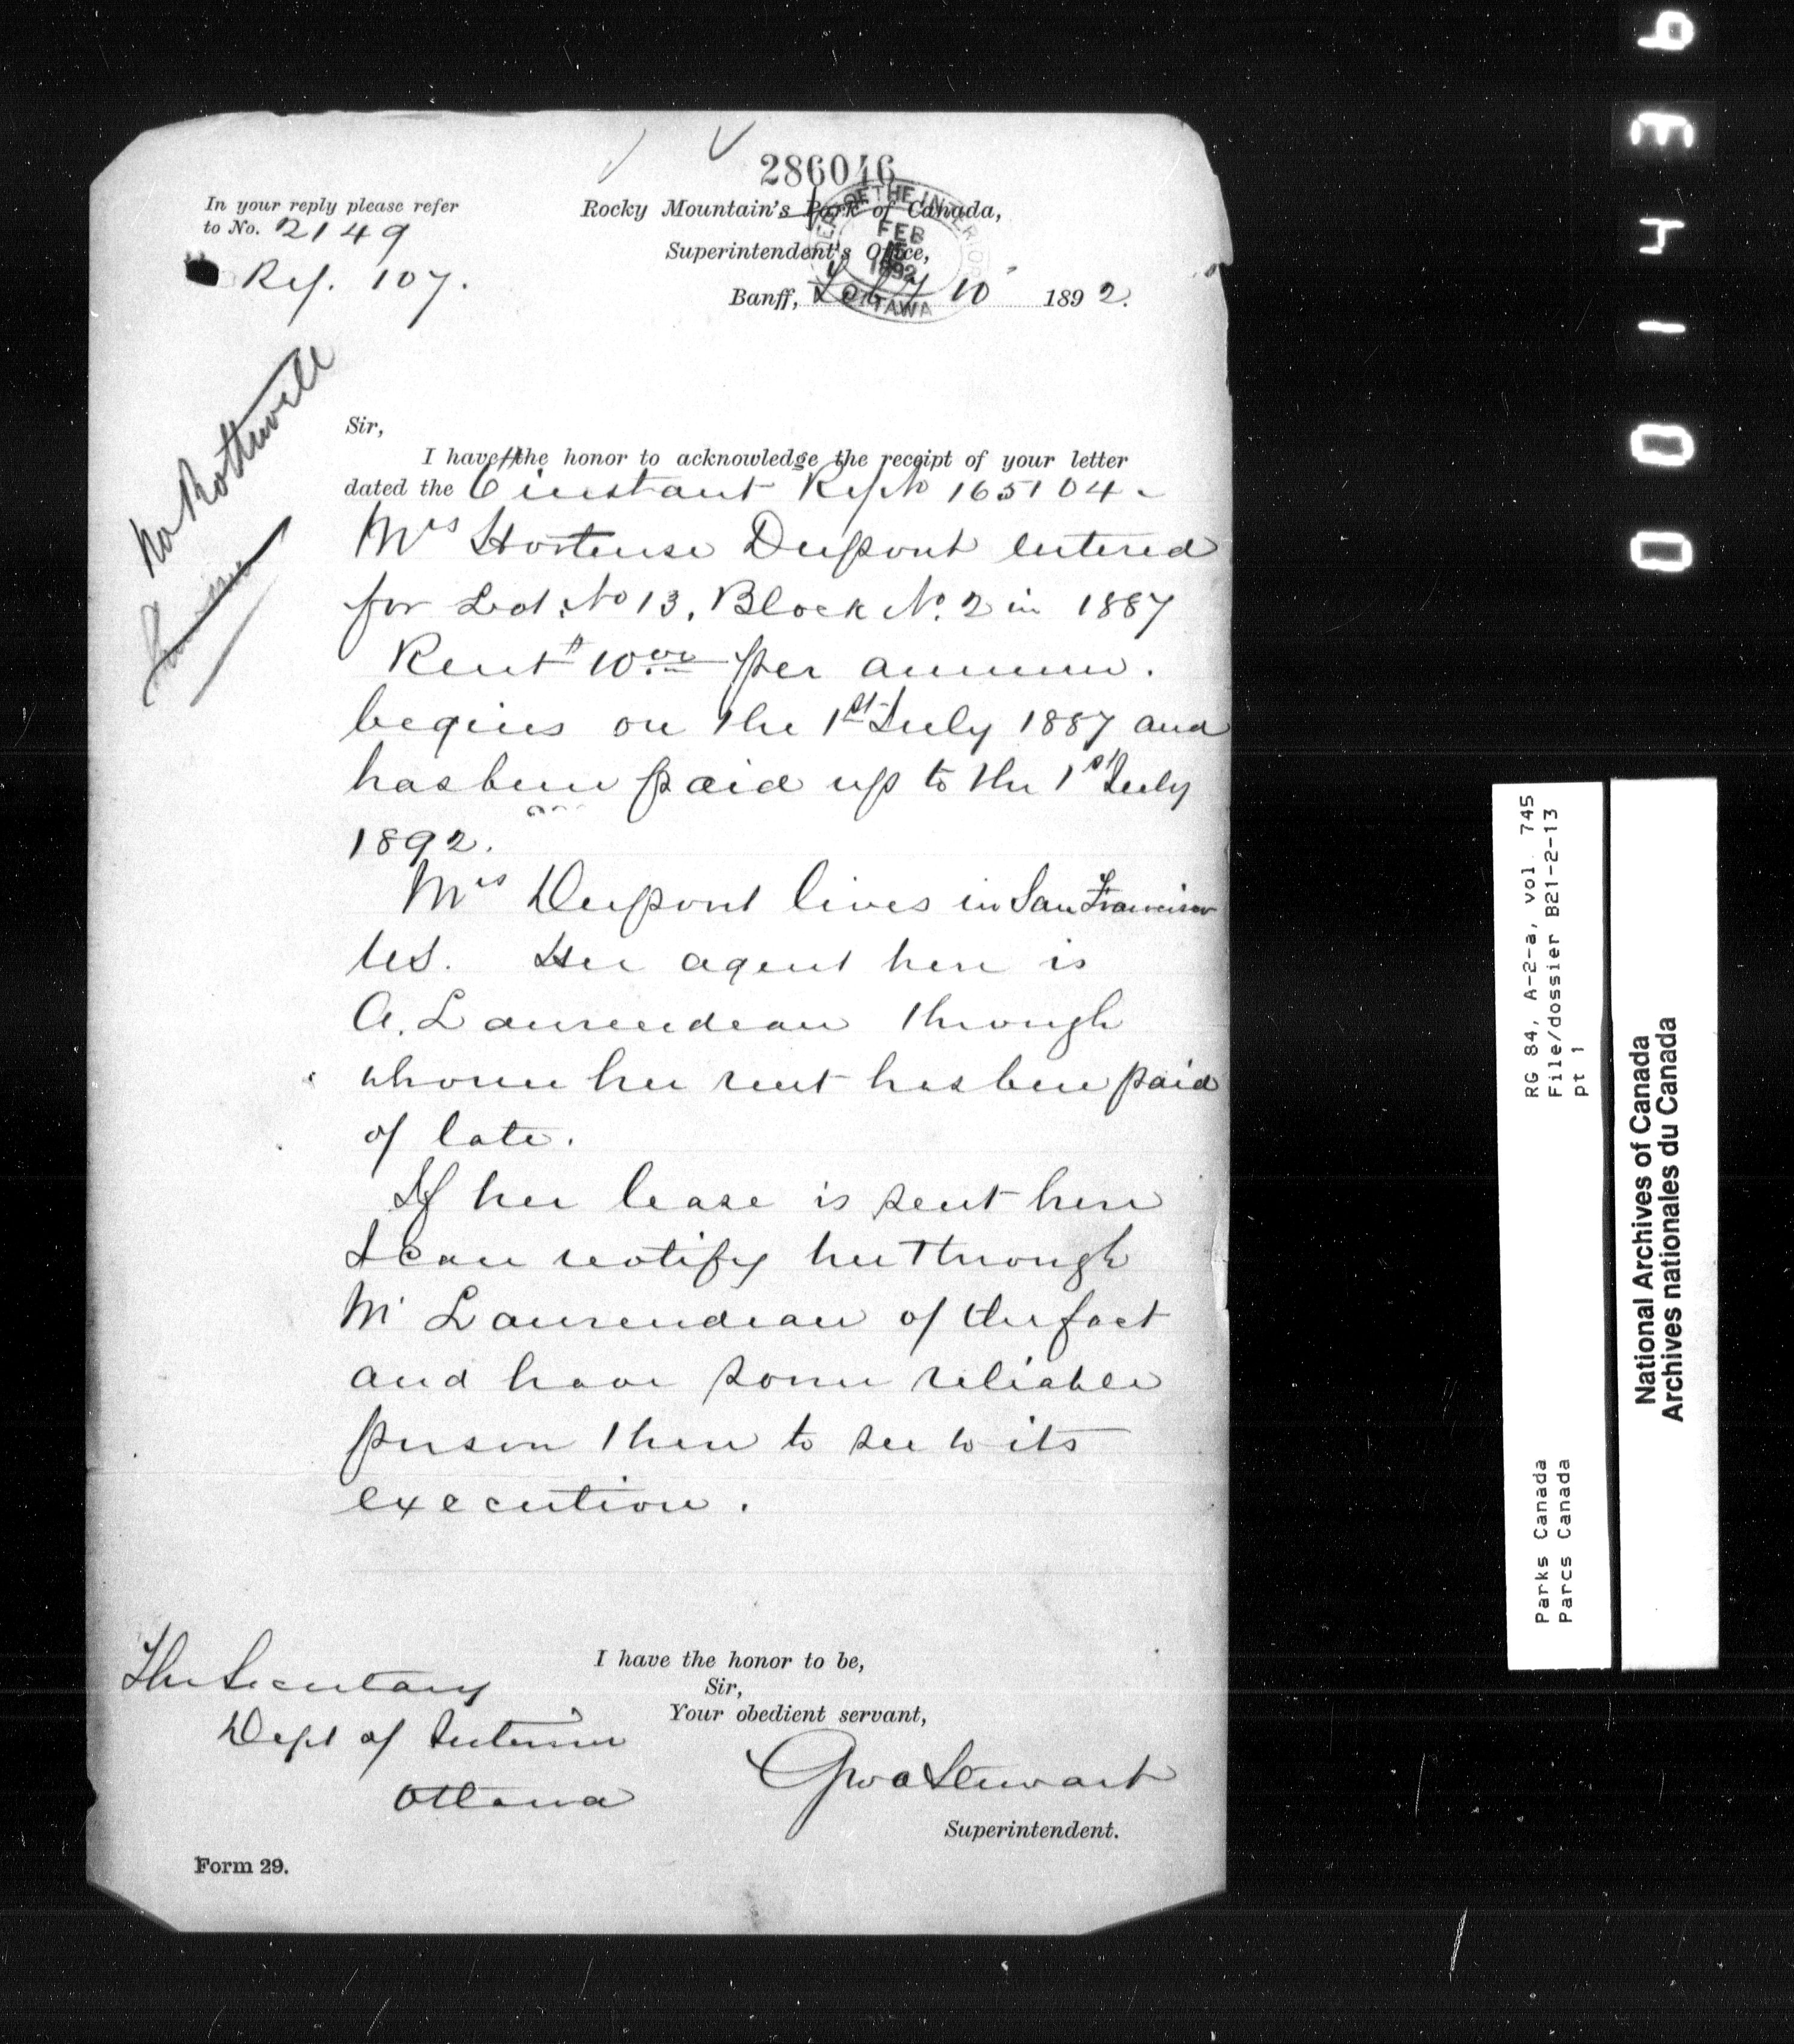 286046
In your reply please refer
to No. 2149
Ref. 107.
Rocky Mountain's Park of Canada,
Superintendent's Office,
Banff, Feby 10 1892.
OF THE INTERIOR
FEB
15
1892
OTTAWA
Mr Rothwell
Sir,
I have the honor to acknowledge the receipt of your letter
dated the 6 instant Ref No 165104.
Mrs Hortense Dupont entered
for Lot No 13, Block No. 2 in 1887
Rent $10.00 per annum.
begins on the 1st July 1887 and
has been paid up to the 1st July
1892.
Mrs Dupont lives in San Francisco
US. Her agent here is
A. Laurendeau through
whom her rent has been paid
of late.
If her lease is sent here
I can notify her through
Mr Laurendeau of the fact
and have some reliable
person there to see to its
execution.
I have the honor to be,
Sir,
Your obedient servant,
Geo A Stewart
Superintendent.
The Secretary
Dept of Interior
Ottawa
Form 29.
RG 84, A-2-a, vol. 745
File/dossier B21-2-13
pt 1
Parks Canada
Parcs Canada
National Archives of Canada
Archives nationales du Canada
001436